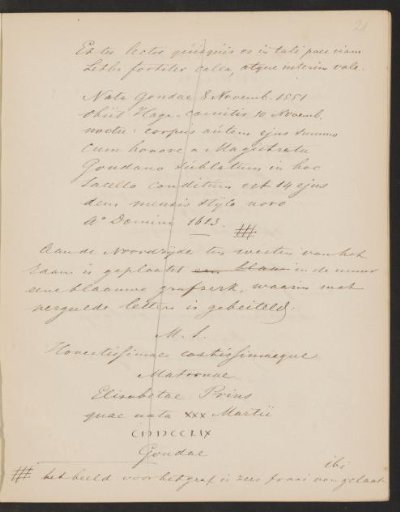 21
Ex tu lector quisquis es in tali pace viam
Lethi fortiter calca, atque interim vale.
Nata Goudae 8 Novemb. 1551
Obiit Hagae-Comitis 10 Novemb.
noctu: corpus autem ejus summo
cum honore a Magistratu
Goudano sublatum in hoc
sacello conditum est 14 ejus
dem mensis stylo novo
Ao Domini 1613.
Aan de Noordzijde ten westen van het
raam is geplaatst in de muur
eene blaauwe grafzerk, waarin met
vergulde letters is gebeiteld,
M. S.
Honestissimae castissimaeque
Matronae
Elisabetae Prins
quae nata XXX Martii
Goudae
ibi
het beeld voor het graf is zeer fraai